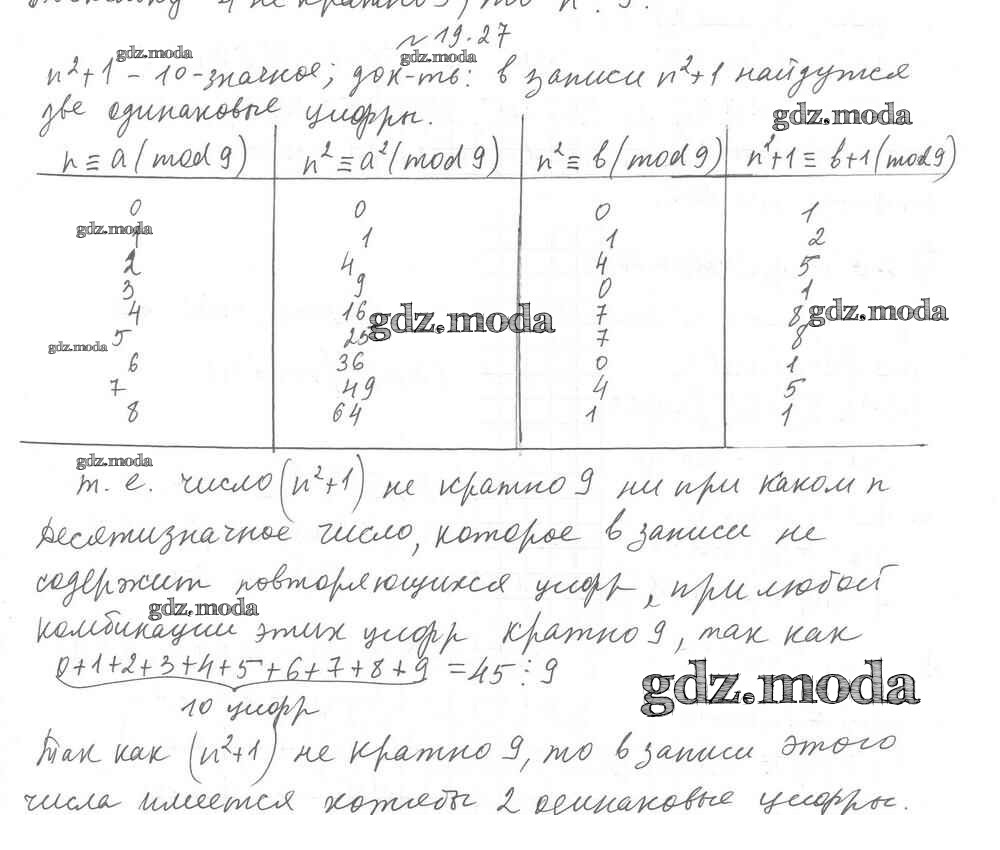 не кратно
№ 19.27
gdz.moda
gdz.moda
n²+1 – 10-значное; док-ть: в записи n²+1 найдутся
две одинаковые цифры.
gdz.moda
n ≡ a (mod 9) n² ≡ a² (mod 9) n² ≡ b (mod 9) n²+1 ≡ b+1 (mod 9)
0 0 0 1
gdz.moda
1 1 1 2
2 4 4 5
3 9 0 1
4 16 7 8
gdz.moda
gdz.moda
5 25 7 8
gdz.moda
6 36 0 1
7 49 4 5
8 64 1 1
gdz.moda
т. е. число (n²+1) не кратно 9 ни при каком n
Десятизначное число, которое в записи не
содержит повторяющихся цифр, при любой
gdz.moda
комбинации этих цифр кратно 9, так как
0+1+2+3+4+5+6+7+8+9 = 45 ⋮ 9
gdz.moda
10 цифр
Так как (n²+1) не кратно 9, то в записи этого
числа имеется хотябы 2 одинаковые цифры.